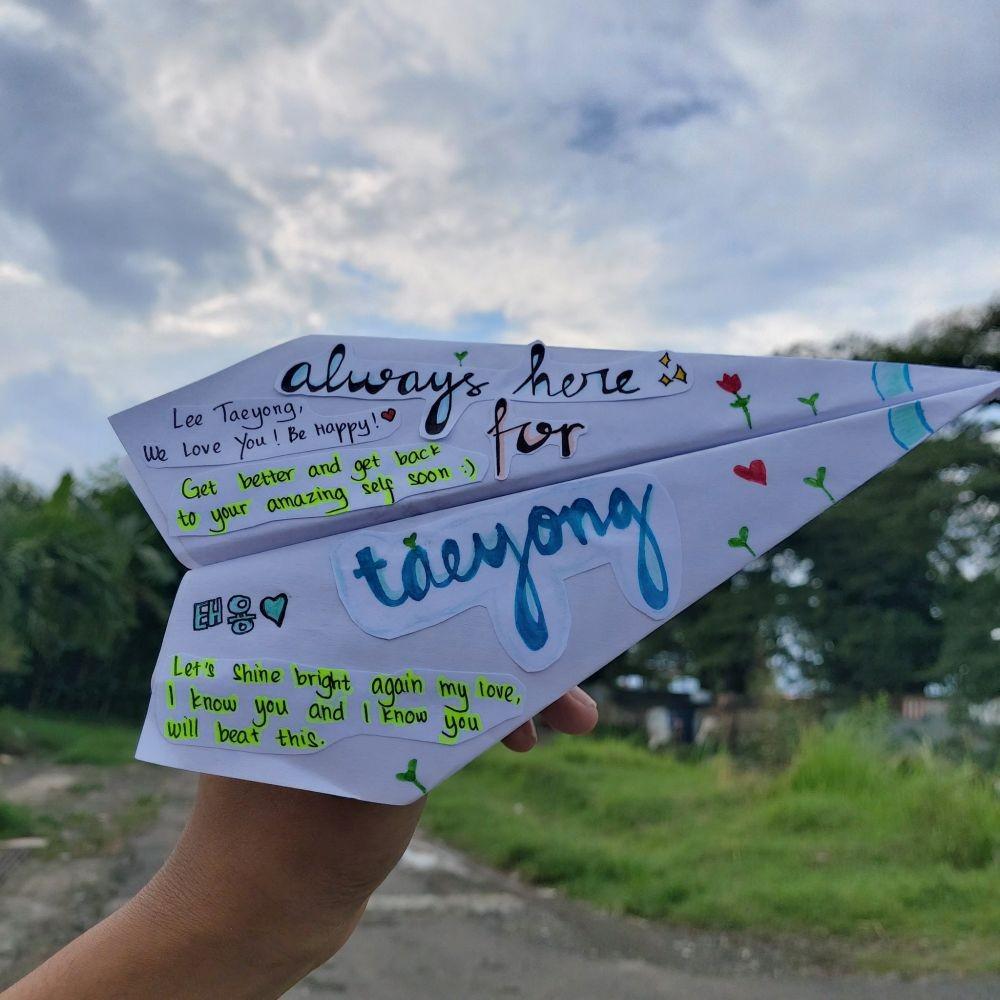 always here
for
Lee Taeyong,
We Love You! Be Happy!
Get better and get back
to your amazing self soon :)
taeyong
태용
Let's Shine bright again my love,
I know you and I know you
will beat this.